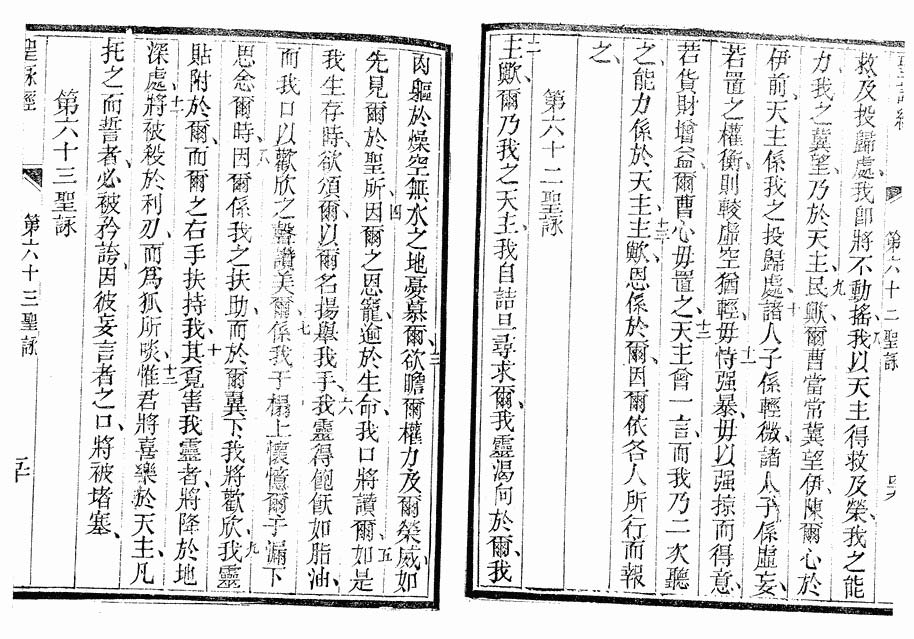 聖詠經　第六十二聖詠
救及投歸處、我卽將不動搖、八我以天主得救及榮、我之能
力、我之冀望、乃於天主、九民歟、爾曹當常冀望伊、陳爾心於
伊前、天主係我之投歸處、十諸人子係輕微、諸人子係虛妄、
若置之權衡、則較虛空猶輕、十一毋恃强暴、毋以强掠而得意、
若貨財增益、爾曹心毋置之、十二天主曾一言、而我乃二次聽
之、能力係於天主、十三主歟、恩係於爾、因爾依各人所行而報
之、
第六十二聖詠
十二主歟、爾乃我之天主、我自詰旦尋求爾、我靈渴向於爾、我
肉軀於燥空無水之地慕爾、三欲瞻爾權力及爾榮威、如
先見爾於聖所、四因爾之恩寵、逾於生命、我口將讚爾、五如是
我生存時、欲頌爾、以爾名揚舉我手、六我靈得飽飫如脂油、
而我口以歡欣之聲讚美爾、七係我于榻上懷憶爾、于漏下
思念爾時、八因爾係我之扶助、而於爾翼下、我將歡欣、九我靈
貼附於爾、而爾之右手扶持我、十其覔害我靈者、將降於地
深處、十一將被殺於利刃、而爲狐所啖、十二惟君將喜樂於天主、凡
托之而誓者、必被矜誇、因彼妄言者之口、將被堵塞、
第六十三聖詠
聖詠經　第六十三聖詠